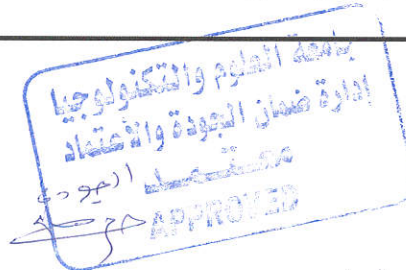 جامعة العلوم والتكنولوجيا
إدارة ضمان الجودة والأعتماد
معتمد
APPROVED